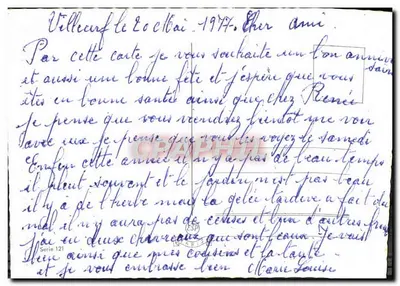 Villeurf le 20 Mai 1977. Cher ami.
Par cette carte je vous souhaite un bon anniver
saire
et aussi une bonne fête et j'espère que vous
êtes en bonne santée ainsi que chez
je pense que vous viendrez bientot me voir
avec eux je pense que vous les voyez le samedi
Enfin cette année il n'y a pas de beau temps
il pleut souvent et le jardin n'est pas beau
il y a de l'herbe mais la gelée tardive a fait du
mal il n'y aura pas de cerises et d'autres
j'ai eu deux chevreaux qui sont beaux Je vais
bien ainsi que mes cousins et la tante
et je vous embrasse bien Marie Louise
Serie 121